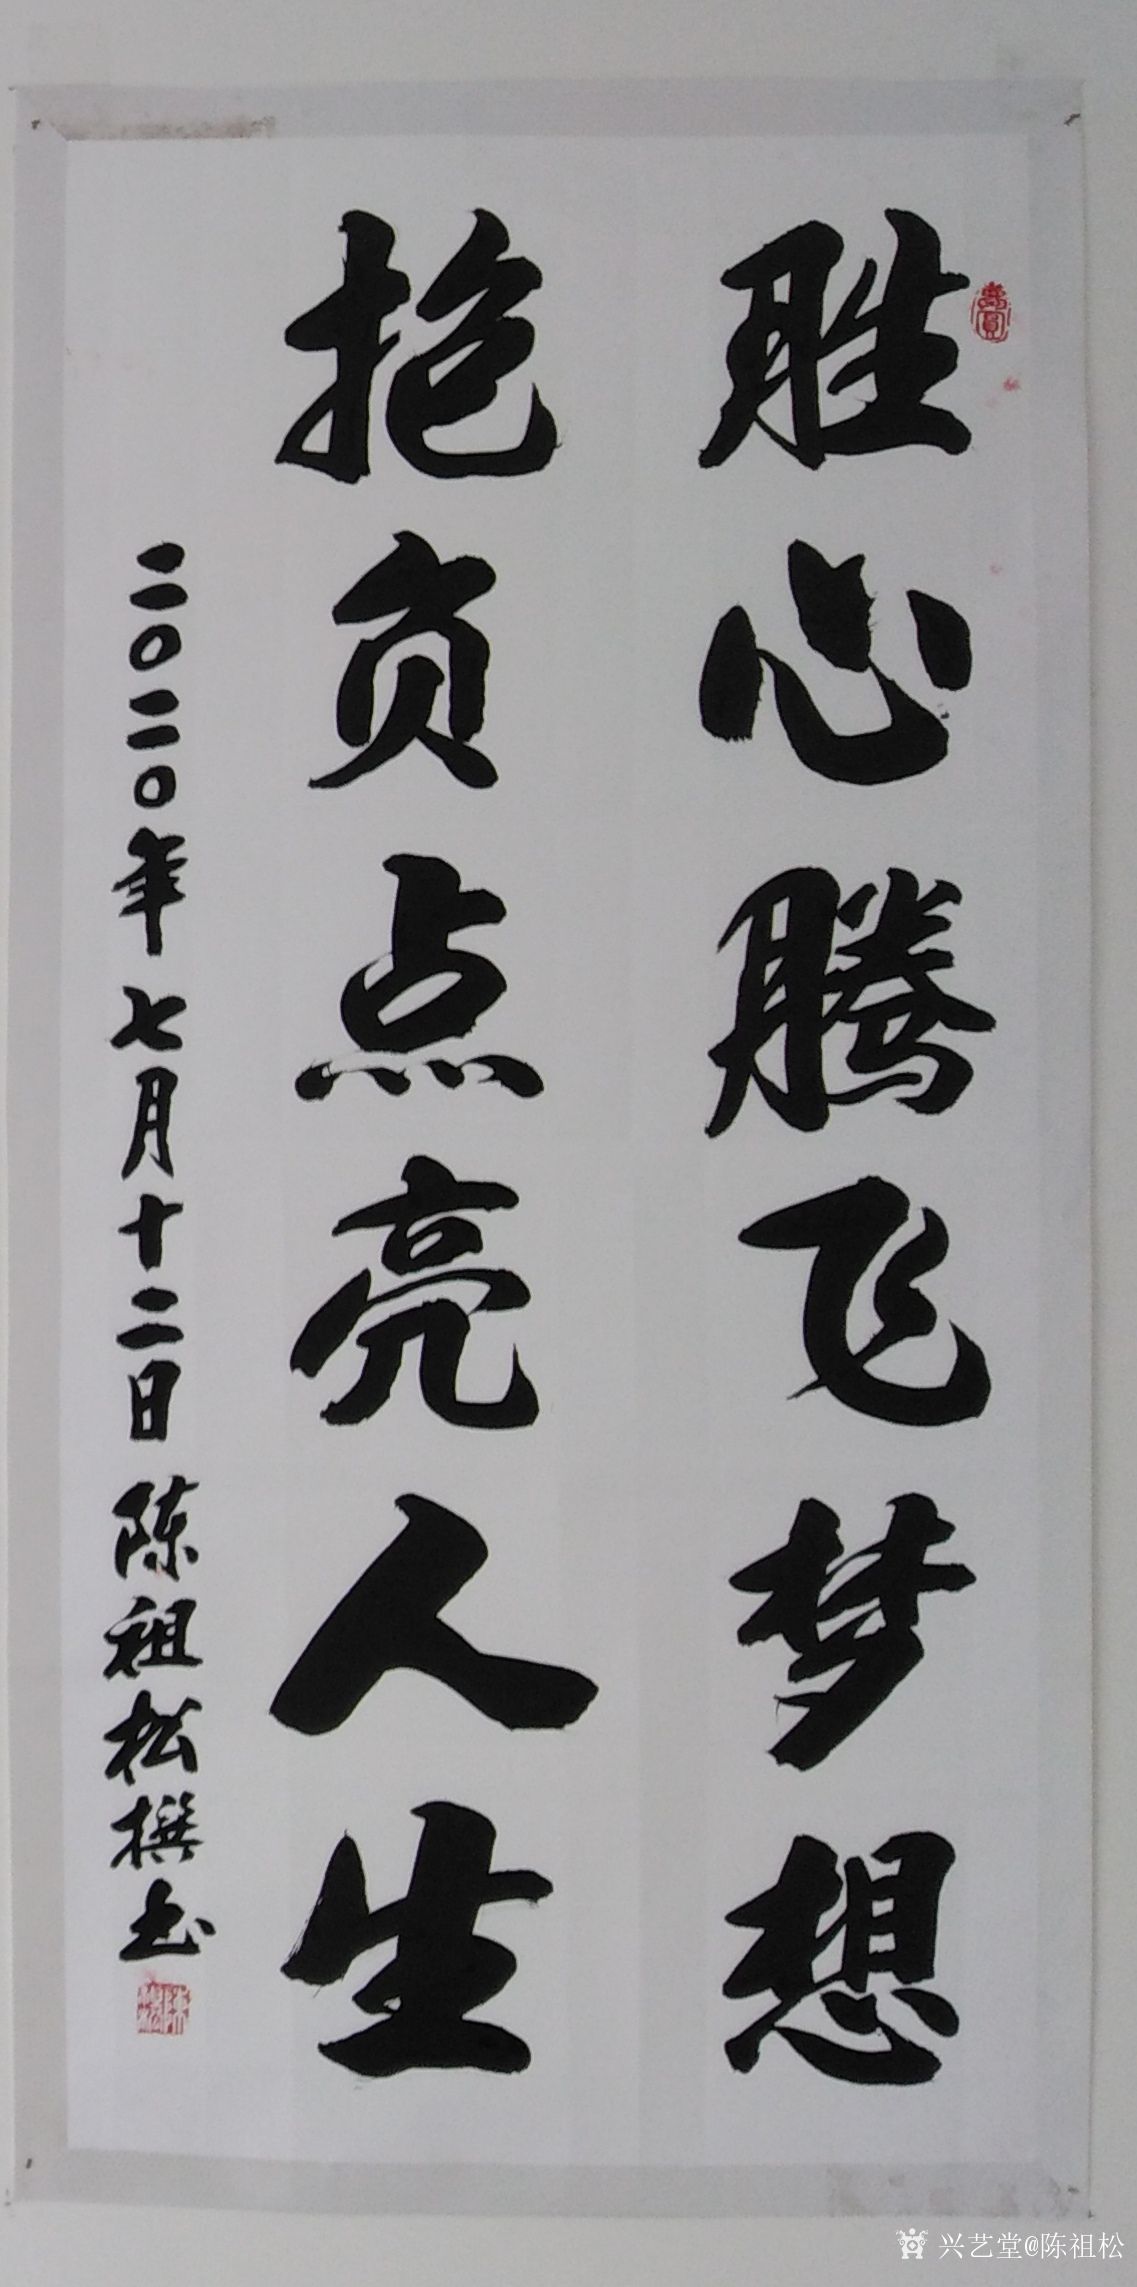 胜心腾飞梦想
抱负点亮人生
二〇二〇年七月十二日陈祖松撰书
兴艺堂@陈祖松